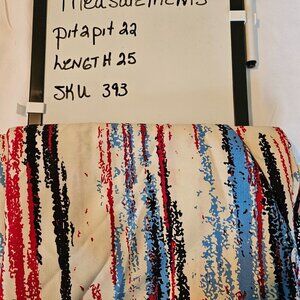 Measurements
pit2pit 22
LENGTH 25
SKU 393